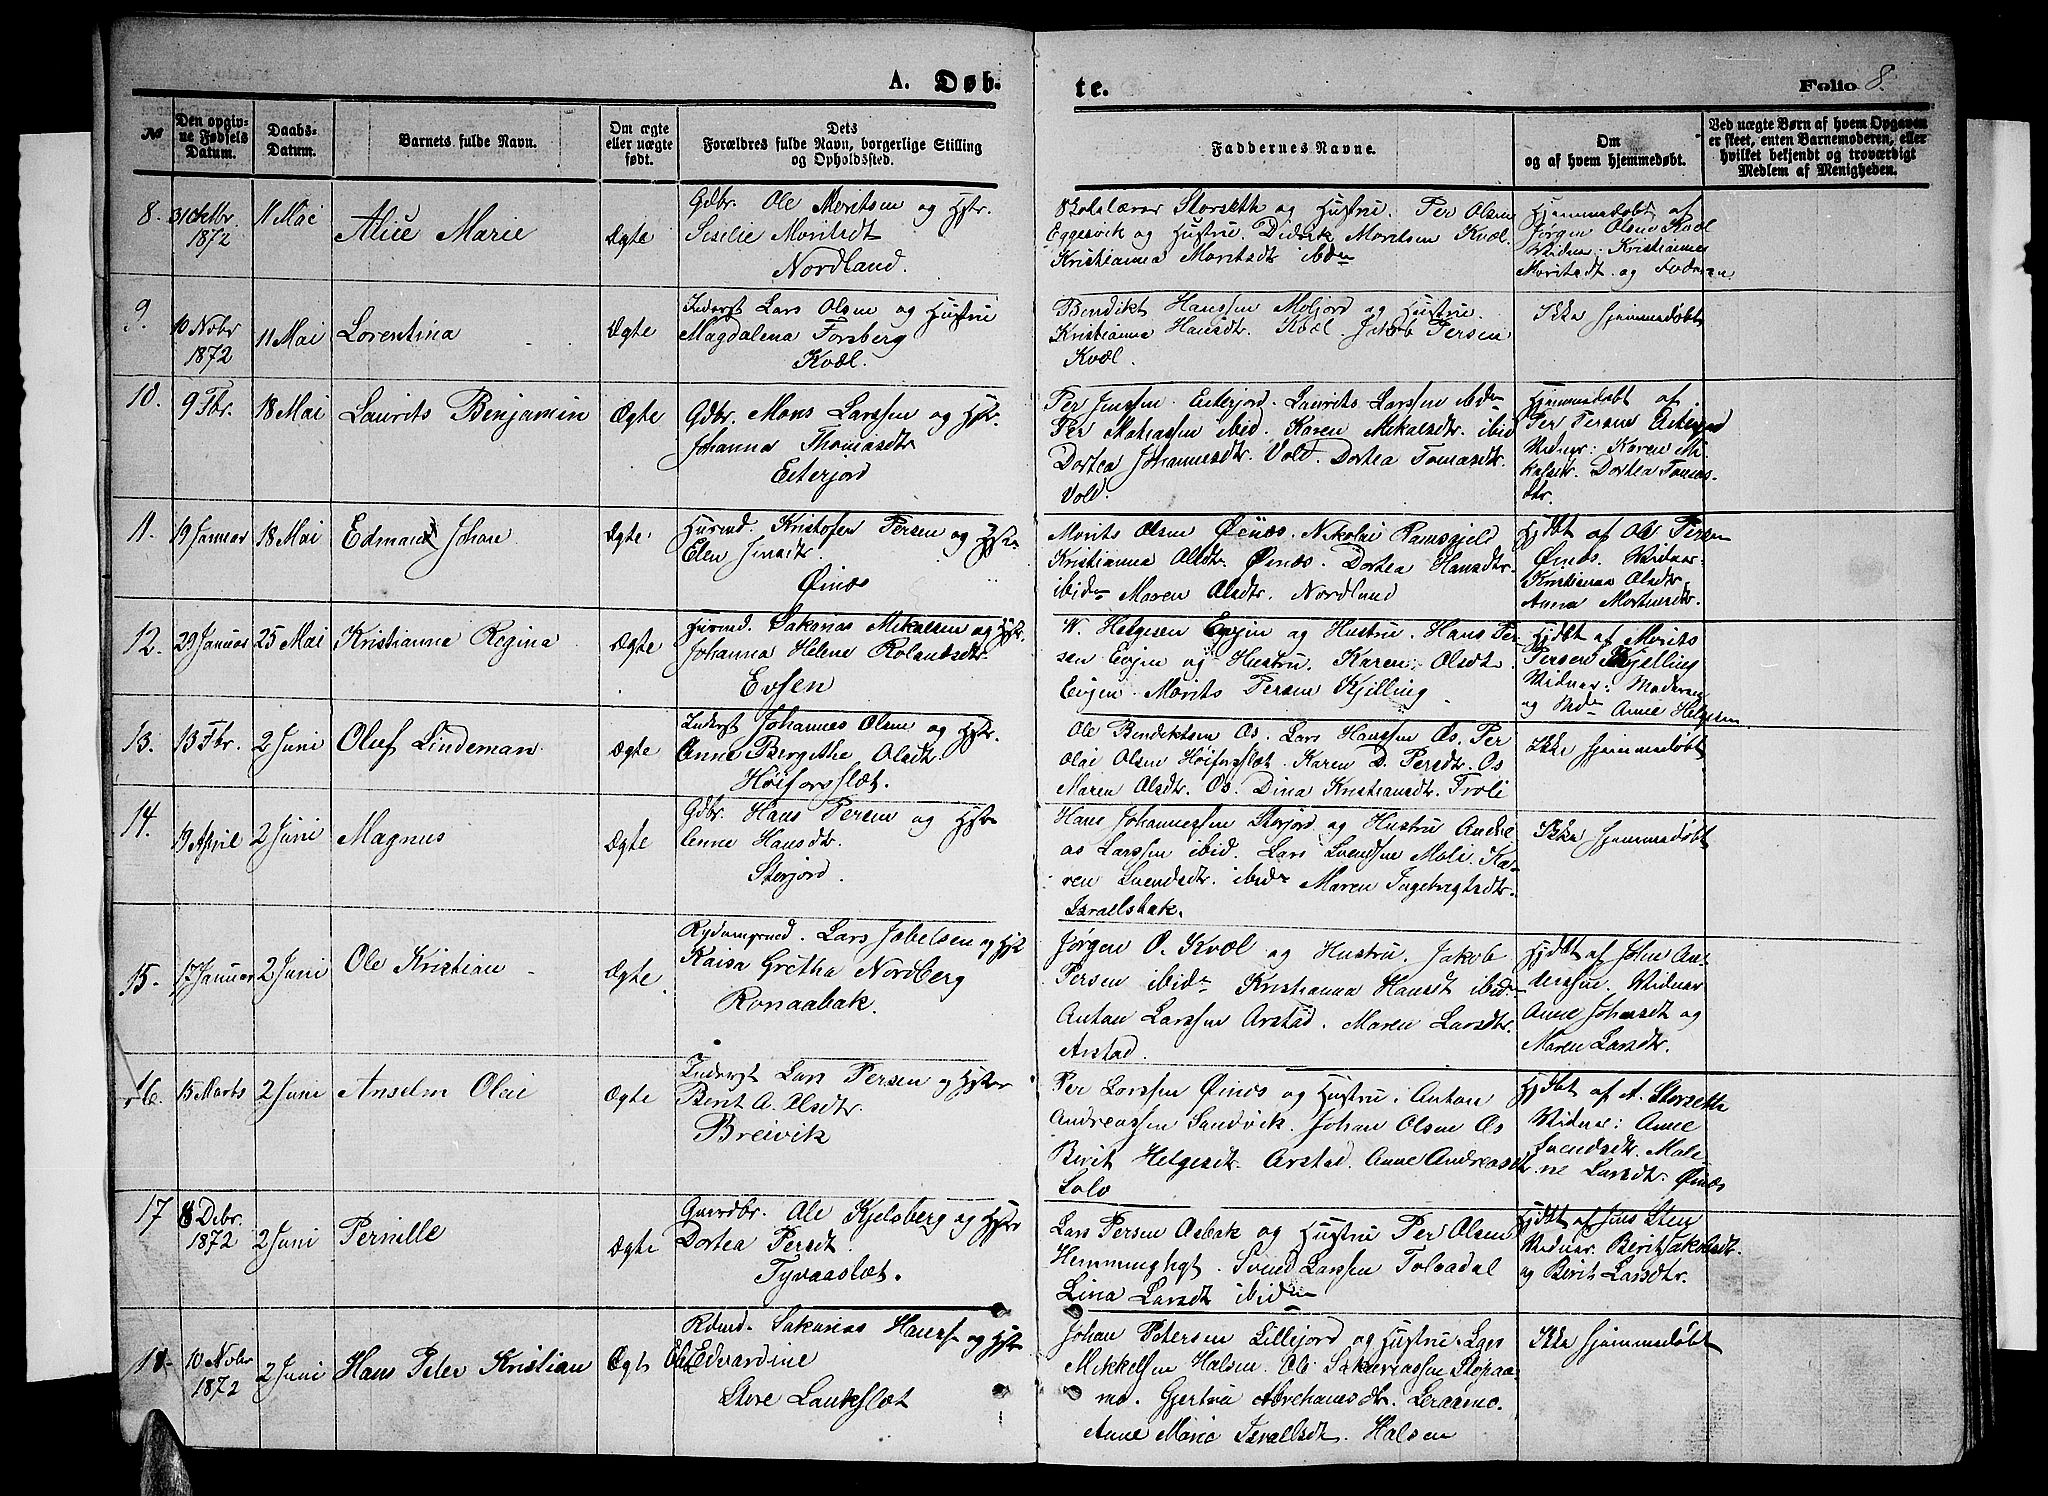 A. Døb. te. Folio 8.
№ Den opgivne Fødsels Datum. Daabs-Datum. Barnets fulde Navn. Om ægte eller uægte født. Dets Forældres fulde Navn, borgerlige Stilling og Opholdssted. Faddernes Navne. Om og af hvem hjemmedøbt. Ved uægte Børn af hvem Opgaven er skeet, enten Barnemoderen, eller hvilket bekjendt og troværdigt Medlem af Menigheden.
8. 31 Oktbr. 1872 11 Mai Alice Marie Ægte
Gdbr. Ole Moritsen og Hstr.
Sisilie Moritsdt
Nordland.
Skolelærer Storseth og Hustru. Per Olsen
Eggesvik og Hustru. Didrik Moritsen Kvæl.
Kristianna Moritsdtr ibdn
Hjemmedøbt af
Jørgen Olsen Kvæl
Vidner: Kristianna
Moritsdt. og Faderen
9. 10 Nobr 1872 11 Mai Lorentina Ægte
Inderst Lars Olsen og Hustru
Magdalena Forsberg
Kvæl.
Bendikt Hanssen Moljord og Hustru.
Kristianna Hansdtr. Kvæl. Jakob Persen
Kvæl.
Ikke hjemmedøbt
10. 9 Fbr. 18 Mai Laurits Benjamin Ægte
Gdbr. Mons Larssen og Hstr.
Johanna Thomasdtr
Eiterjord
Per Jenssen Eiterjord. Laurits Larssen ibidn
Per Matiassen ibid. Karen Mikalsdtr. ibid
Dortea Johannesdtr. Vold. Dortea Tomasdtr.
Vold.
Hjemmedøbt af
Per Persen Eiterjord
Vidner: Karen Mi-
kalsdtr. Dortea Tomas-
dtr.
11. 19 Januar 18 Mai Edmand Johan Ægte.
Husmd. Kristofer Persen og Hstr.
Elen Jensdtr.
Øinæs
Morits Olsen Øinæs. Nikolai Ramsgjeld
Kristianna Olsdtr. Øinæs. Dortea Hansdtr.
ibidn Maren Olsdtr. Nordland
Hjdbt af Ole Persen
Øinæs. Vidner
Kristiana Olsdtr.
Anna Mortensdtr.
12. 29 Januar 25 Mai Kristianna Regina Ægte
Husmd. Sakarias Mikalsen og Hstr.
Johanna Helene Rolandsdtr.
Evjen
W. Helgesen Evjen og Hustru. Hans Per-
sen Evjen og Hustru. Karen Olsdt
Evjen. Morits Persen Kjelling
Hjdbt af Morits
Persen Kjelling
Vidner: Moderen
og Md Anne Helgesen
13. 13 Fbr. 2 Juni Oluf Lindeman Ægte
Inderst Johannes Olsen og Hstr.
Anne Bergithe Olsdt.
Høiforsslæt.
Ole Bendiktsen Os. Lars Hanssen Os. Per
Olai Olsen Høiforsslæt. Karen D. Persdtr. Os
Maren Olsdtr. Os. Dina Kristiansdtr. Troli
Ikke hjemmedøbt
14. 13 April 2 Juni Magnus Ægte
Gdbr. Hans Persen og Hstr
Anne Hansdtr.
Storjord.
Hans Johannessen Storjord og Hustru Andre-
as Larssen ibid. Lars Svendsen Moli. Ka-
ren Svendsdtr. ibidn Maren Ingebrigtsdtr.
Israelsbak.
Ikke hjemmedøbt
15. 17 Januar 2 Juni Ole Kristian Ægte
Rydningsmd. Lars Jobelsen og Hst
Kaisa Gretha Nordberg
Ronaabak.
Jørgen O. Kvæl og Hustru. Jakob
Persen ibidn Kristianna Hansdt ibidn
Anton Larssen Arstad. Maren Larsdtr.
Arstad.
Hjdbt af Johan An-
derssen. Vidner
Anne Johansdt og
Maren Larsdtr.
16. 15 Marts 2 Juni Anselm Olai Ægte
Inderst Lars Persen og Hstr
Berit A. Olsdtr.
Breivik
Per Larssen Øinæs og Hustru. Anton
Andreassen Sandvik. Johan Olsen Os
Berit Helgesdt. Arstad. Anne Andreasdt
Solo
Hjdbt af A. Storseth
Vidner: Anne
Svendsdtr. Mali
ne Larsdtr. Øinæs
17 8 Debr. 1872 2 Juni Pernille Ægte
Gaardbr. Ole Kjelsberg og Hstr
Dortea Persdt.
Tyvaaslæt.
Lars Persen Osbak og Hustru Per Olsen
Hemminghgt. Svend Larssen Tolaadal
Lina Larsdt ibidn
Hjdbt af Jens Sten
Vidner. Berit Jakobsdt.
og Berit Larsdtr.
18. 10 Nobr 1872 2 Juni Hans Peter Kristian Ægte
Rdmd. Sakarias Hanss. og Hstr
Edvardine
Store Laukslæt
Johan Petersen Lillejord og Hustru. Lars
Mikkelsen Halsen. Ole Sakariassen Stopaa-
mo. Gjertru Abrahamsdtr. Leraamo.
Anne Marie Israelsdt. Halsen
Ikke hjemmedøbt